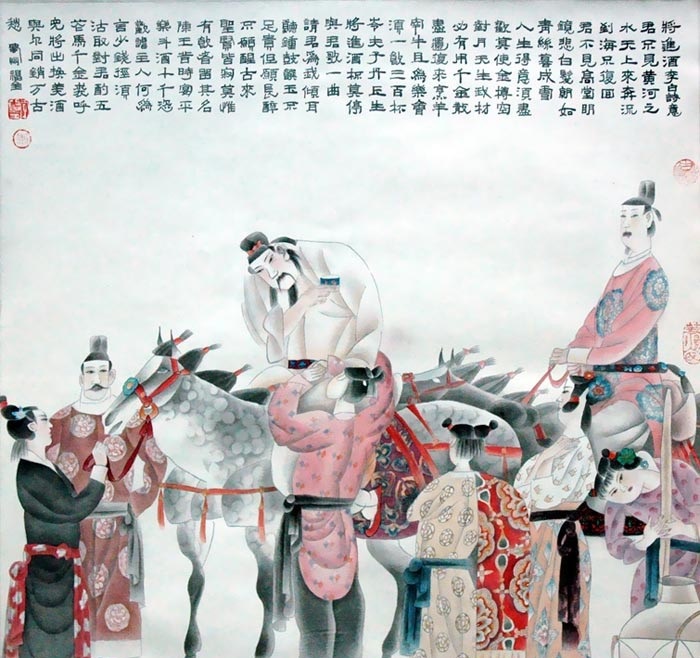 將進酒李白詩意
君不見黃河之
水天上來奔流
到海不復回
君不見高堂明
鏡悲白髮朝如
青絲暮成雪
人生得意須盡
歡莫使金樽空
對月天生我材
必有用千金散
盡還復來烹羊
宰牛且為樂會
須一飲三百杯
岑夫子丹丘生
將進酒杯莫停
與君歌一曲
請君為我傾耳
聽鐘鼓饌玉不
足貴但願長醉
不願醒古來
聖賢皆寂寞惟
有飲者留其名
陳王昔時宴平
樂斗酒十千恣
歡謔主人何為
言少錢徑須
沽取對君酌五
花馬千金裘呼
兒將出換美酒
與爾同銷万古
愁